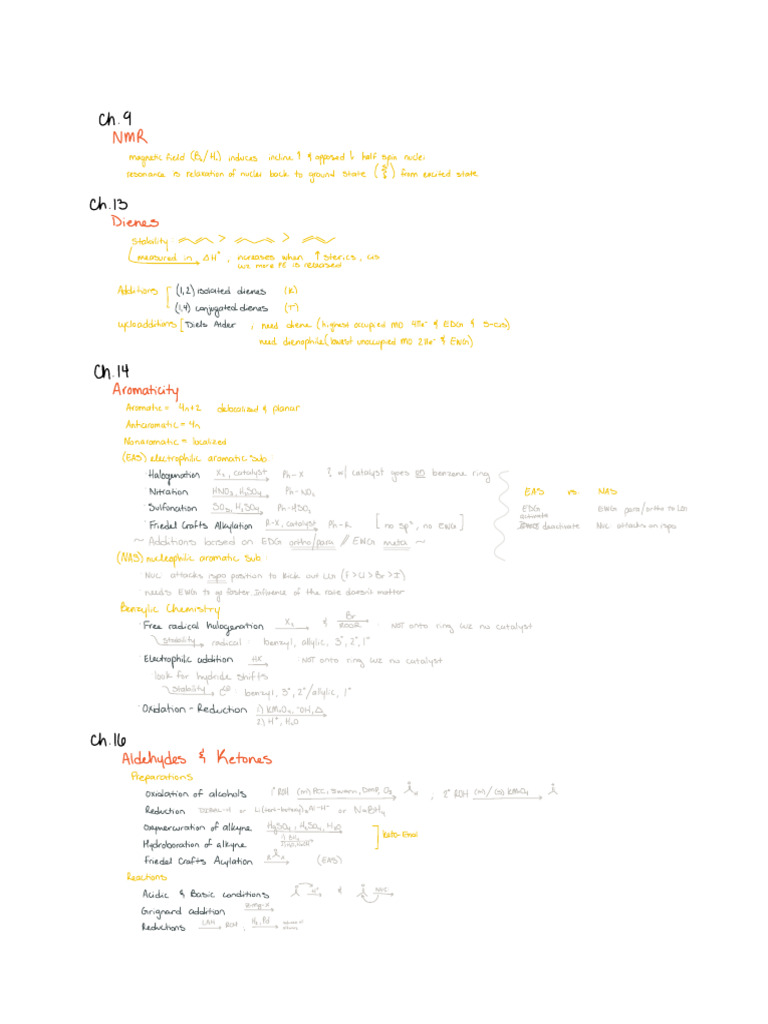 Ch. 9
NMR
magnetic field (B₀/H₀) induces incline ↑ & opposed ↓ half spin nuclei
resonance is relaxation of nuclei back to ground state from excited state
Ch. 13
Dienes
Stability: > >
measured in → ΔH°, increases when ↑ sterics, cis
b/c more PE is released
Additions (1,2) isolated dienes (K)
(1,4) conjugated dienes (T)
cycloadditions [Diels Alder, need diene (highest occupied mo 4πe⁻ & EDG & S-cis)
need dienophile (lowest unoccupied mo 2πe⁻ & EWG)
Ch. 14
Aromaticity
Aromatic = 4n+2 delocalized & planar
Antiaromatic = 4n
Nonaromatic = localized
(EAS) electrophilic aromatic sub:
Halogenation X₂, catalyst → Ph-X w/ catalyst goes on benzene ring
Nitration HNO₃, H₂SO₄ → Ph-NO₂
Sulfonation SO₃, H₂SO₄ → Ph-HSO₃
Friedel Crafts Alkylation R-X, catalyst → Ph-R [no sp², no EWG]
~ Additions located on EDG ortho/para // EWG meta ~
EAS vs. NAS
EDG activate EWG para/ortho to LG
deactivate Nuc attacks on ispo
(NAS) nucleophilic aromatic sub:
Nuc attacks ispo position to kick out LG (F>Cl>Br>I)
needs EWG to go faster. influence of the rate doesn't matter
Benzylic Chemistry
Free radical halogenation X₂ → & Br ROOR → : NOT onto ring b/c no catalyst
stability → radical: benzyl, allylic, 3°, 2°, 1°
Electrophilic addition HX → : NOT onto ring b/c no catalyst
look for hydride shifts
stability → C⊕: benzyl, 3°, 2°/allylic, 1°
Oxidation - Reduction 1) KMnO₄, ⁻OH, Δ
2) H⁺, H₂O
Ch. 16
Aldehydes & Ketones
Preparations
Oxidation of alcohols 1° ROH PCC, Swern, DMP, → , 2° ROH KMnO₄ →
Reduction DIBAL-H or Li(tert-butoxy)₃Al-H⁻ or NaBH₄
Oxymercuration of alkyne H₂SO₄, HgSO₄, H₂O →
Hydroboration of alkyne 1) BH₃ ] keto-Enol
Friedel Crafts Acylation → (EAS)
Reactions
Acidic & Basic conditions H⁺ → & NUC →
Grignard addition RMg-X →
Reductions LAH → ROH, H₂, Pd →